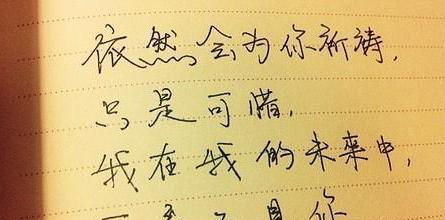 依然会为你祈祷，
只是可惜，
我在我的未来中，